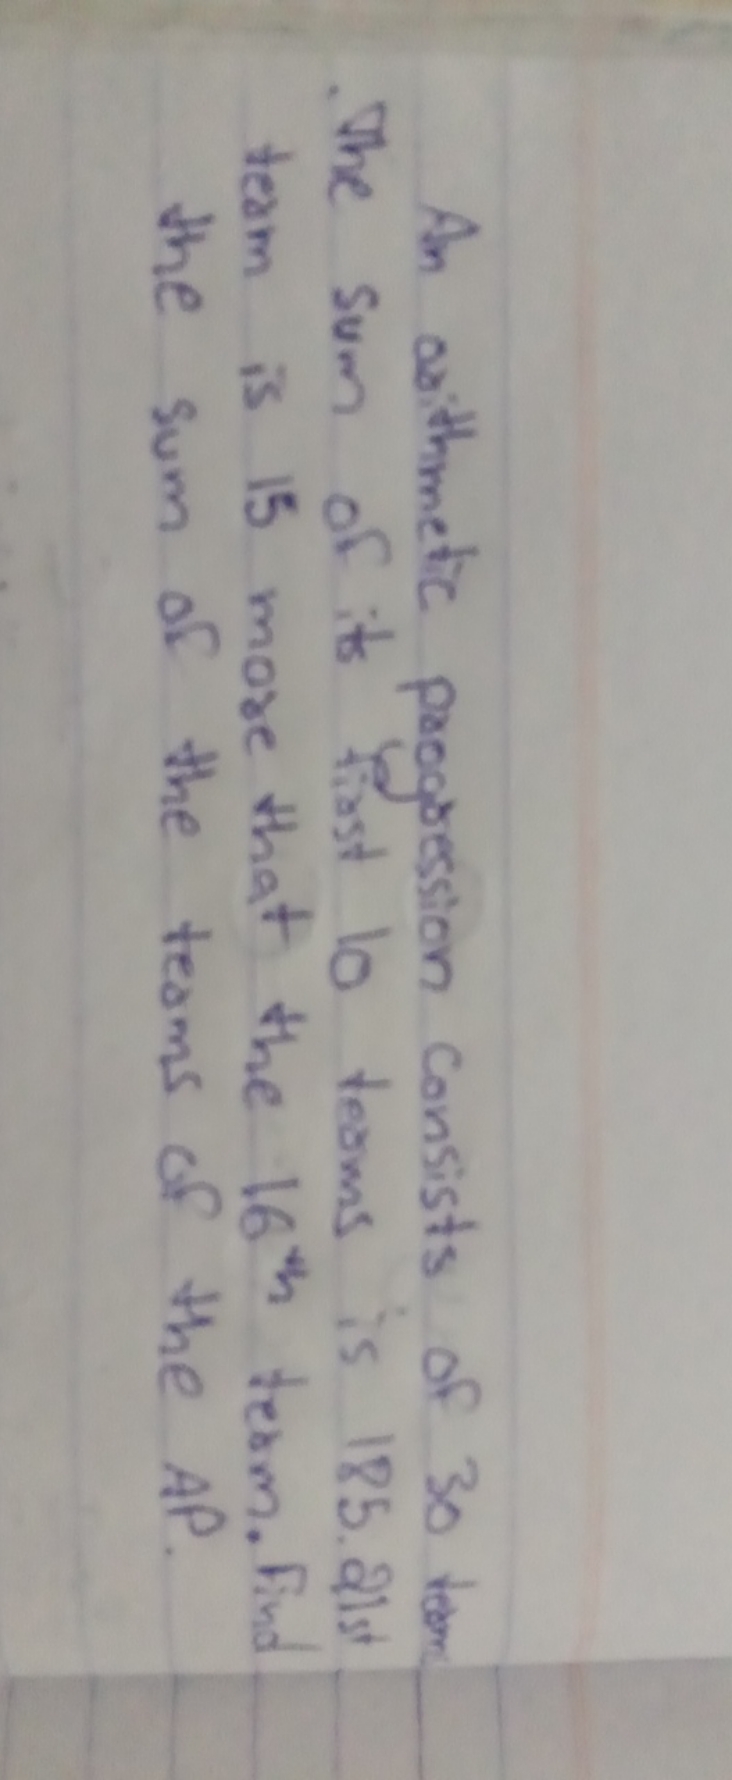 An arithmetic progression consists of 30 term
. The sum of its first 10 terms is 185. 21st
term is 15 more that the 16th term. Find
the sum of the terms of the AP.